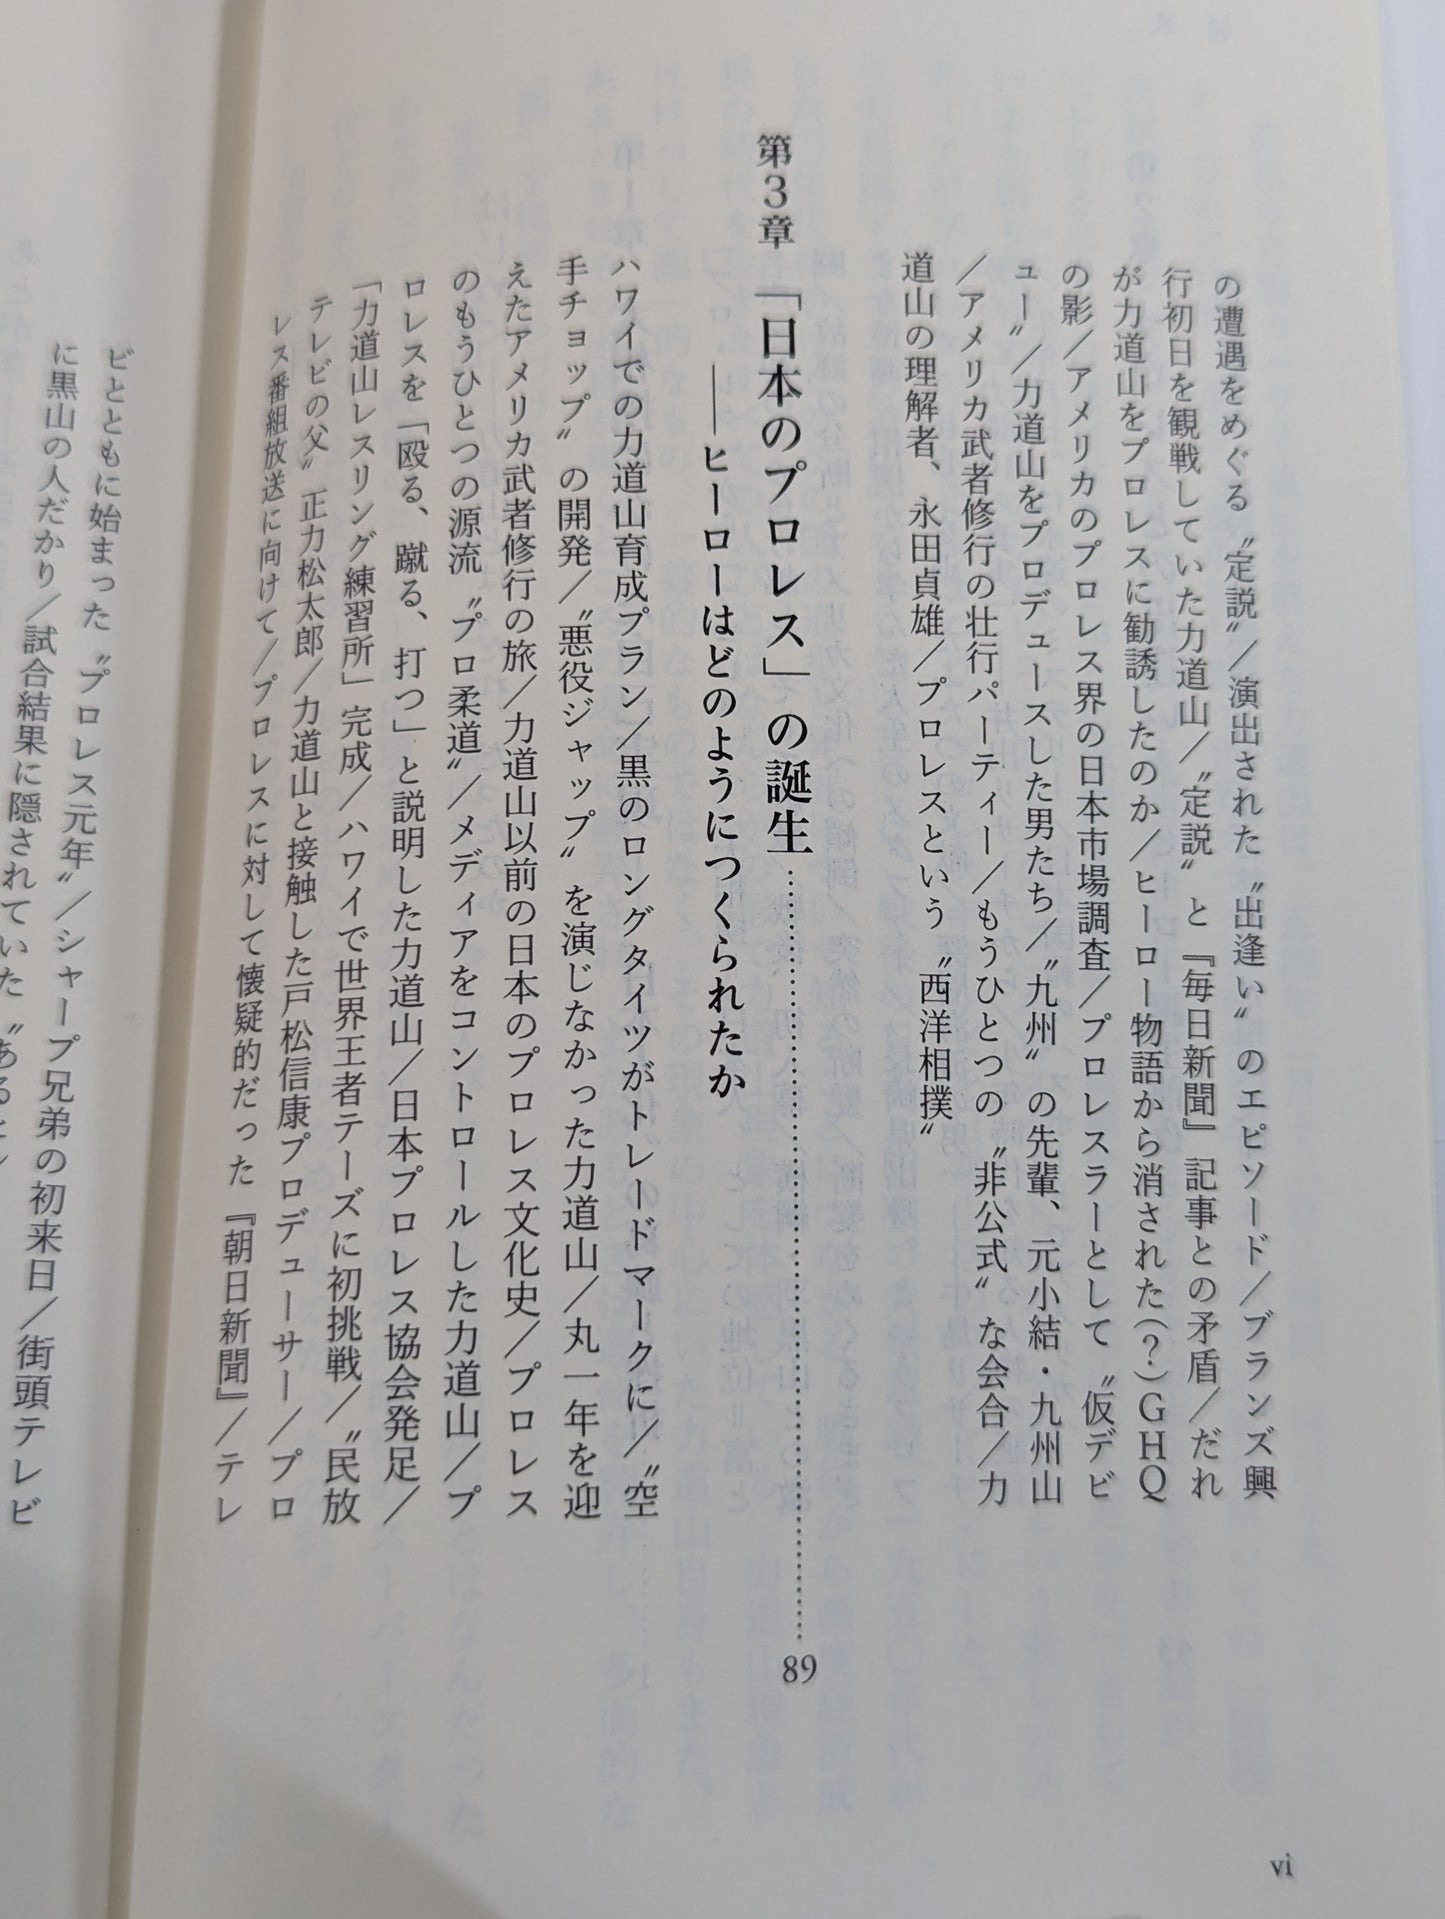 の遭遇をめぐる〝定説〟／演出された〝出逢い〟のエピソード／ブランズ興
行初日を観戦していた力道山／〝定説〟と『毎日新聞』記事との矛盾／だれ
が力道山をプロレスに勧誘したのか／ヒーロー物語から消された(?)GHQ
の影／アメリカのプロレス界の日本市場調査／プロレスラーとして〝仮デビ
ュー〟／力道山をプロデュースした男たち／〝九州〟の先輩、元小結・九州山
／アメリカ武者修行の壮行パーティー／もうひとつの〝非公式〟な会合／力
道山の理解者、永田貞雄／プロレスという〝西洋相撲〟
第3章 「日本のプロレス」の誕生……………………89
――ヒーローはどのようにつくられたか
ハワイでの力道山育成プラン／黒のロングタイツがトレードマークに／〝空
手チョップ〟の開発／〝悪役ジャップ〟を演じなかった力道山／丸一年を迎
えたアメリカ武者修行の旅／力道山以前の日本のプロレス文化史／プロレス
のもうひとつの源流〝プロ柔道〟／メディアをコントロールした力道山／プ
ロレスを「殴る、蹴る、打つ」と説明した力道山／日本プロレス協会発足／
「力道山レスリング練習所」完成／ハワイで世界王者テーズに初挑戦／〝民放
テレビの父〟正力松太郎／力道山と接触した戸松信康プロデューサー／プロ
レス番組放送に向けて／プロレスに対して懐疑的だった『朝日新聞』／テレ
vi
ビとともに始まった〝プロレス元年〟／シャープ兄弟の初来日／街頭テレビ
に黒山の人だかり／試合結果に隠されていた〝ある